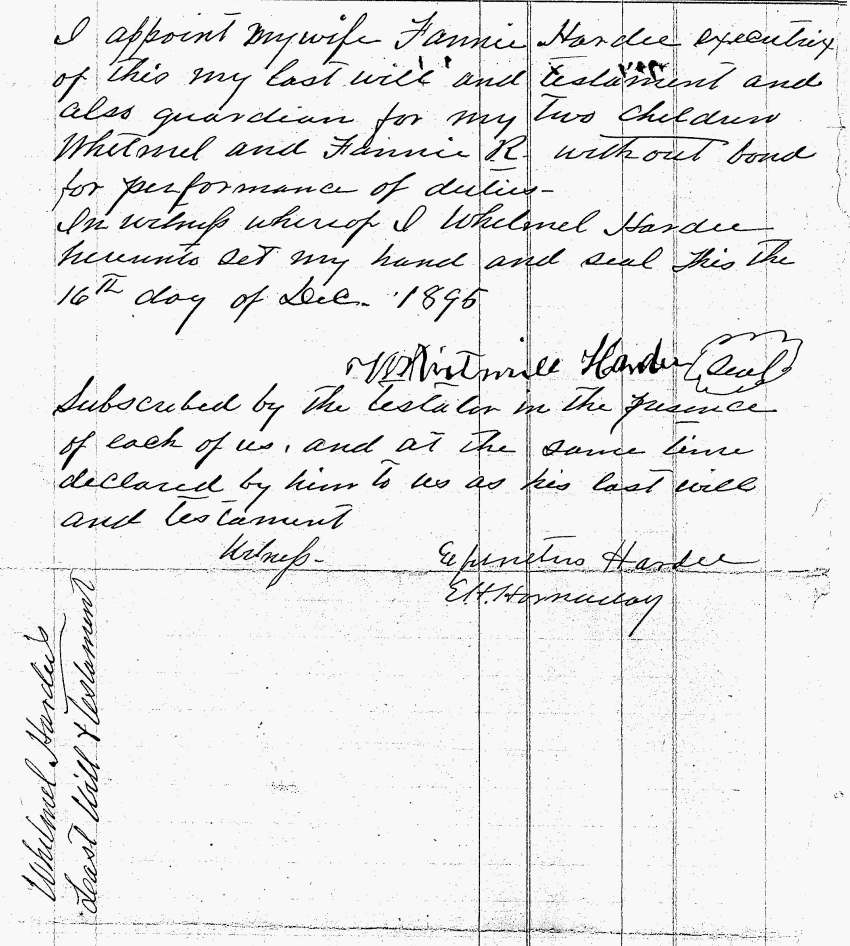 I appoint my wife Fannie Hardee executrix
of this my last will and testament and
also guardian for my two children
Whitmel and Fannie R. without bond
for performance of duties-
In witness whereof I Whitmel Hardee
hereunto set my hand and seal this the
16th day of Dec. 1895
Whitmill Hardee (Seal)
Subscribed by the testator in the presence
of each of us, and at the same time
declared by him to us as his last will
and testament
Witness-
Epenetus Hardee
E.H. Hornaday
Whitmel Hardee's
Last Will & Testament